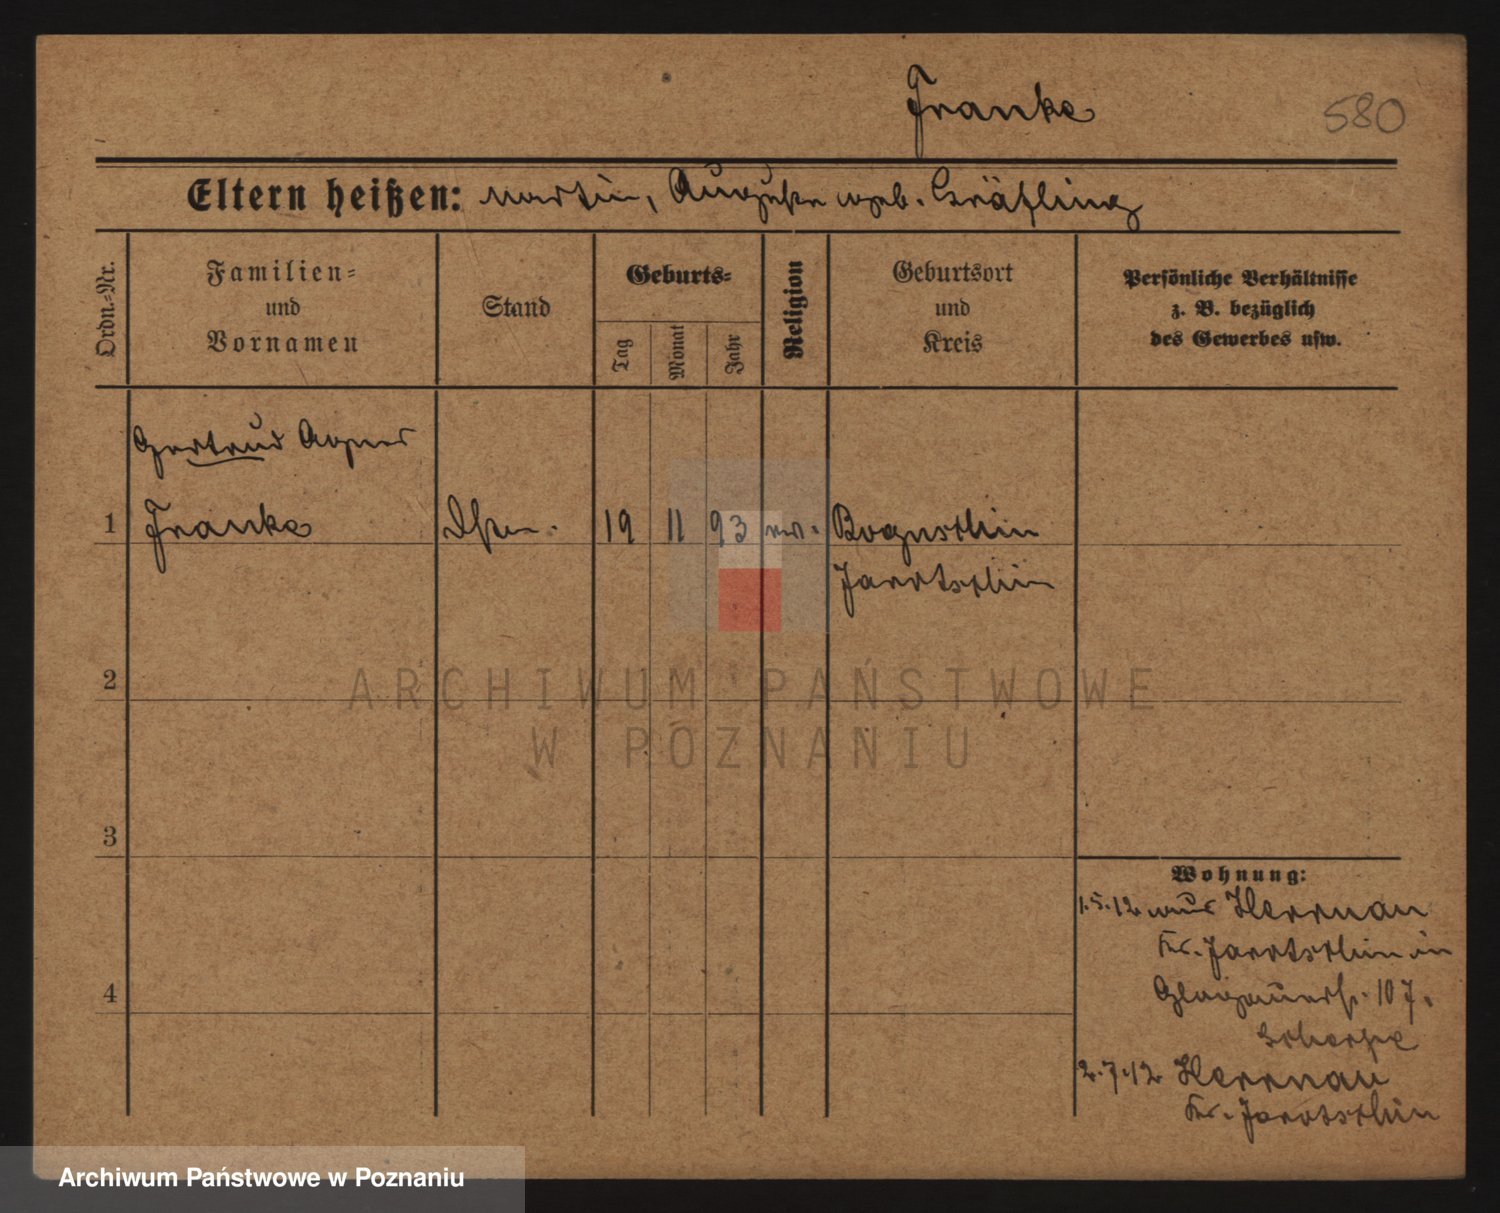 Franke
580
Eltern heißen: Martin, Auguste geb. Gräfling
Ordn.-Nr.
Familien-
und
Vornamen
Stand
Geburts-
Tag
Monat
Jahr
Religion
Geburtsort
und
Kreis
Persönliche Verhältnisse
z. B. bezüglich
des Gewerbes usw.
Gertrud Agnes
1 Franke 19 11 93 ev. Boguschin
Jarotschin
2
3
4
Wohnung:
1.5.12 aus Herrnau
Kr. Jarotschin in
Glogauerstr. 107.
Scherfe
2.7.12 Herrnau
Kr. Jarotschin
ARCHIWUM PAŃSTWOWE
W POZNANIU
Archiwum Państwowe w Poznaniu